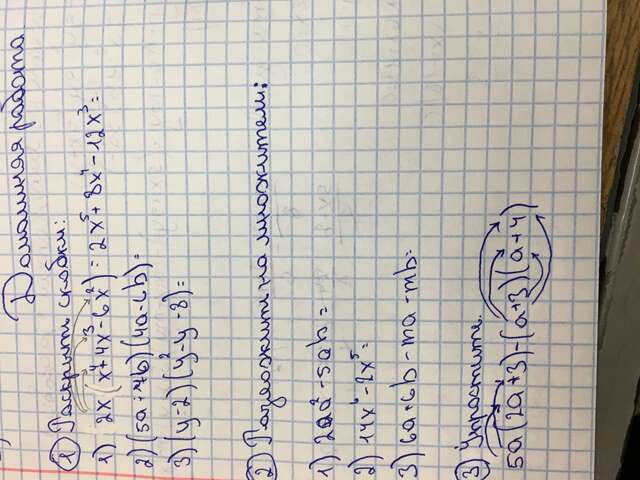 Домашняя работа
1 Раскрыть скобки:
1) 2x(x⁴+4x³-6x²)= 2x⁵+8x⁴-12x³=
2) (5a+7b)(4a-6b)=
3) (y-2)(y²-y-8)=
2 Разложить на множители:
1) 2aa²-5ab=
2) 14x⁶-2x⁵=
3) 6a+6b-ma-mb=
3 Упростите.
5a(2a+3)-(a+3)(a+4)